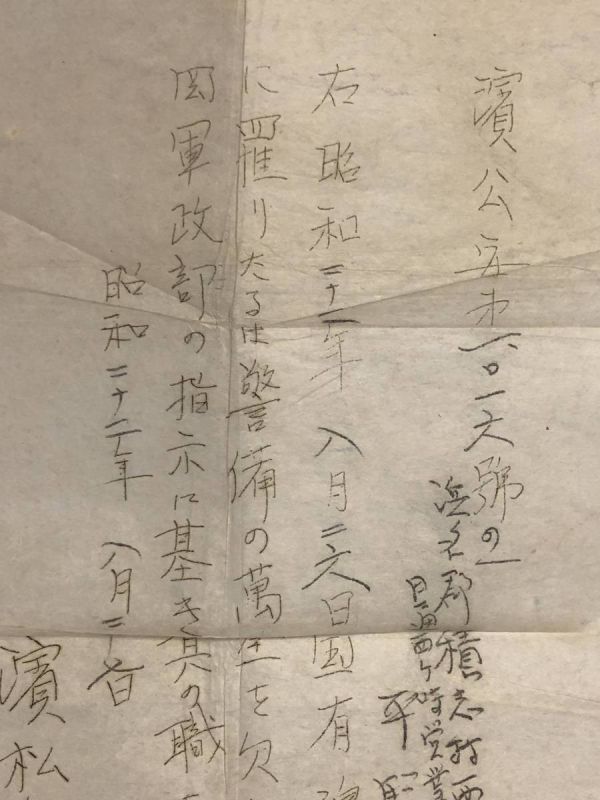 濱公安才一〇一六號の一
浜名郡積志村西
時営業
平
右昭和二十二年 八月二六日国有
に罹りたるは警備の萬全を欠
国軍政部の指示に基き其の職
昭和二十二年 八月二十 日
濱松